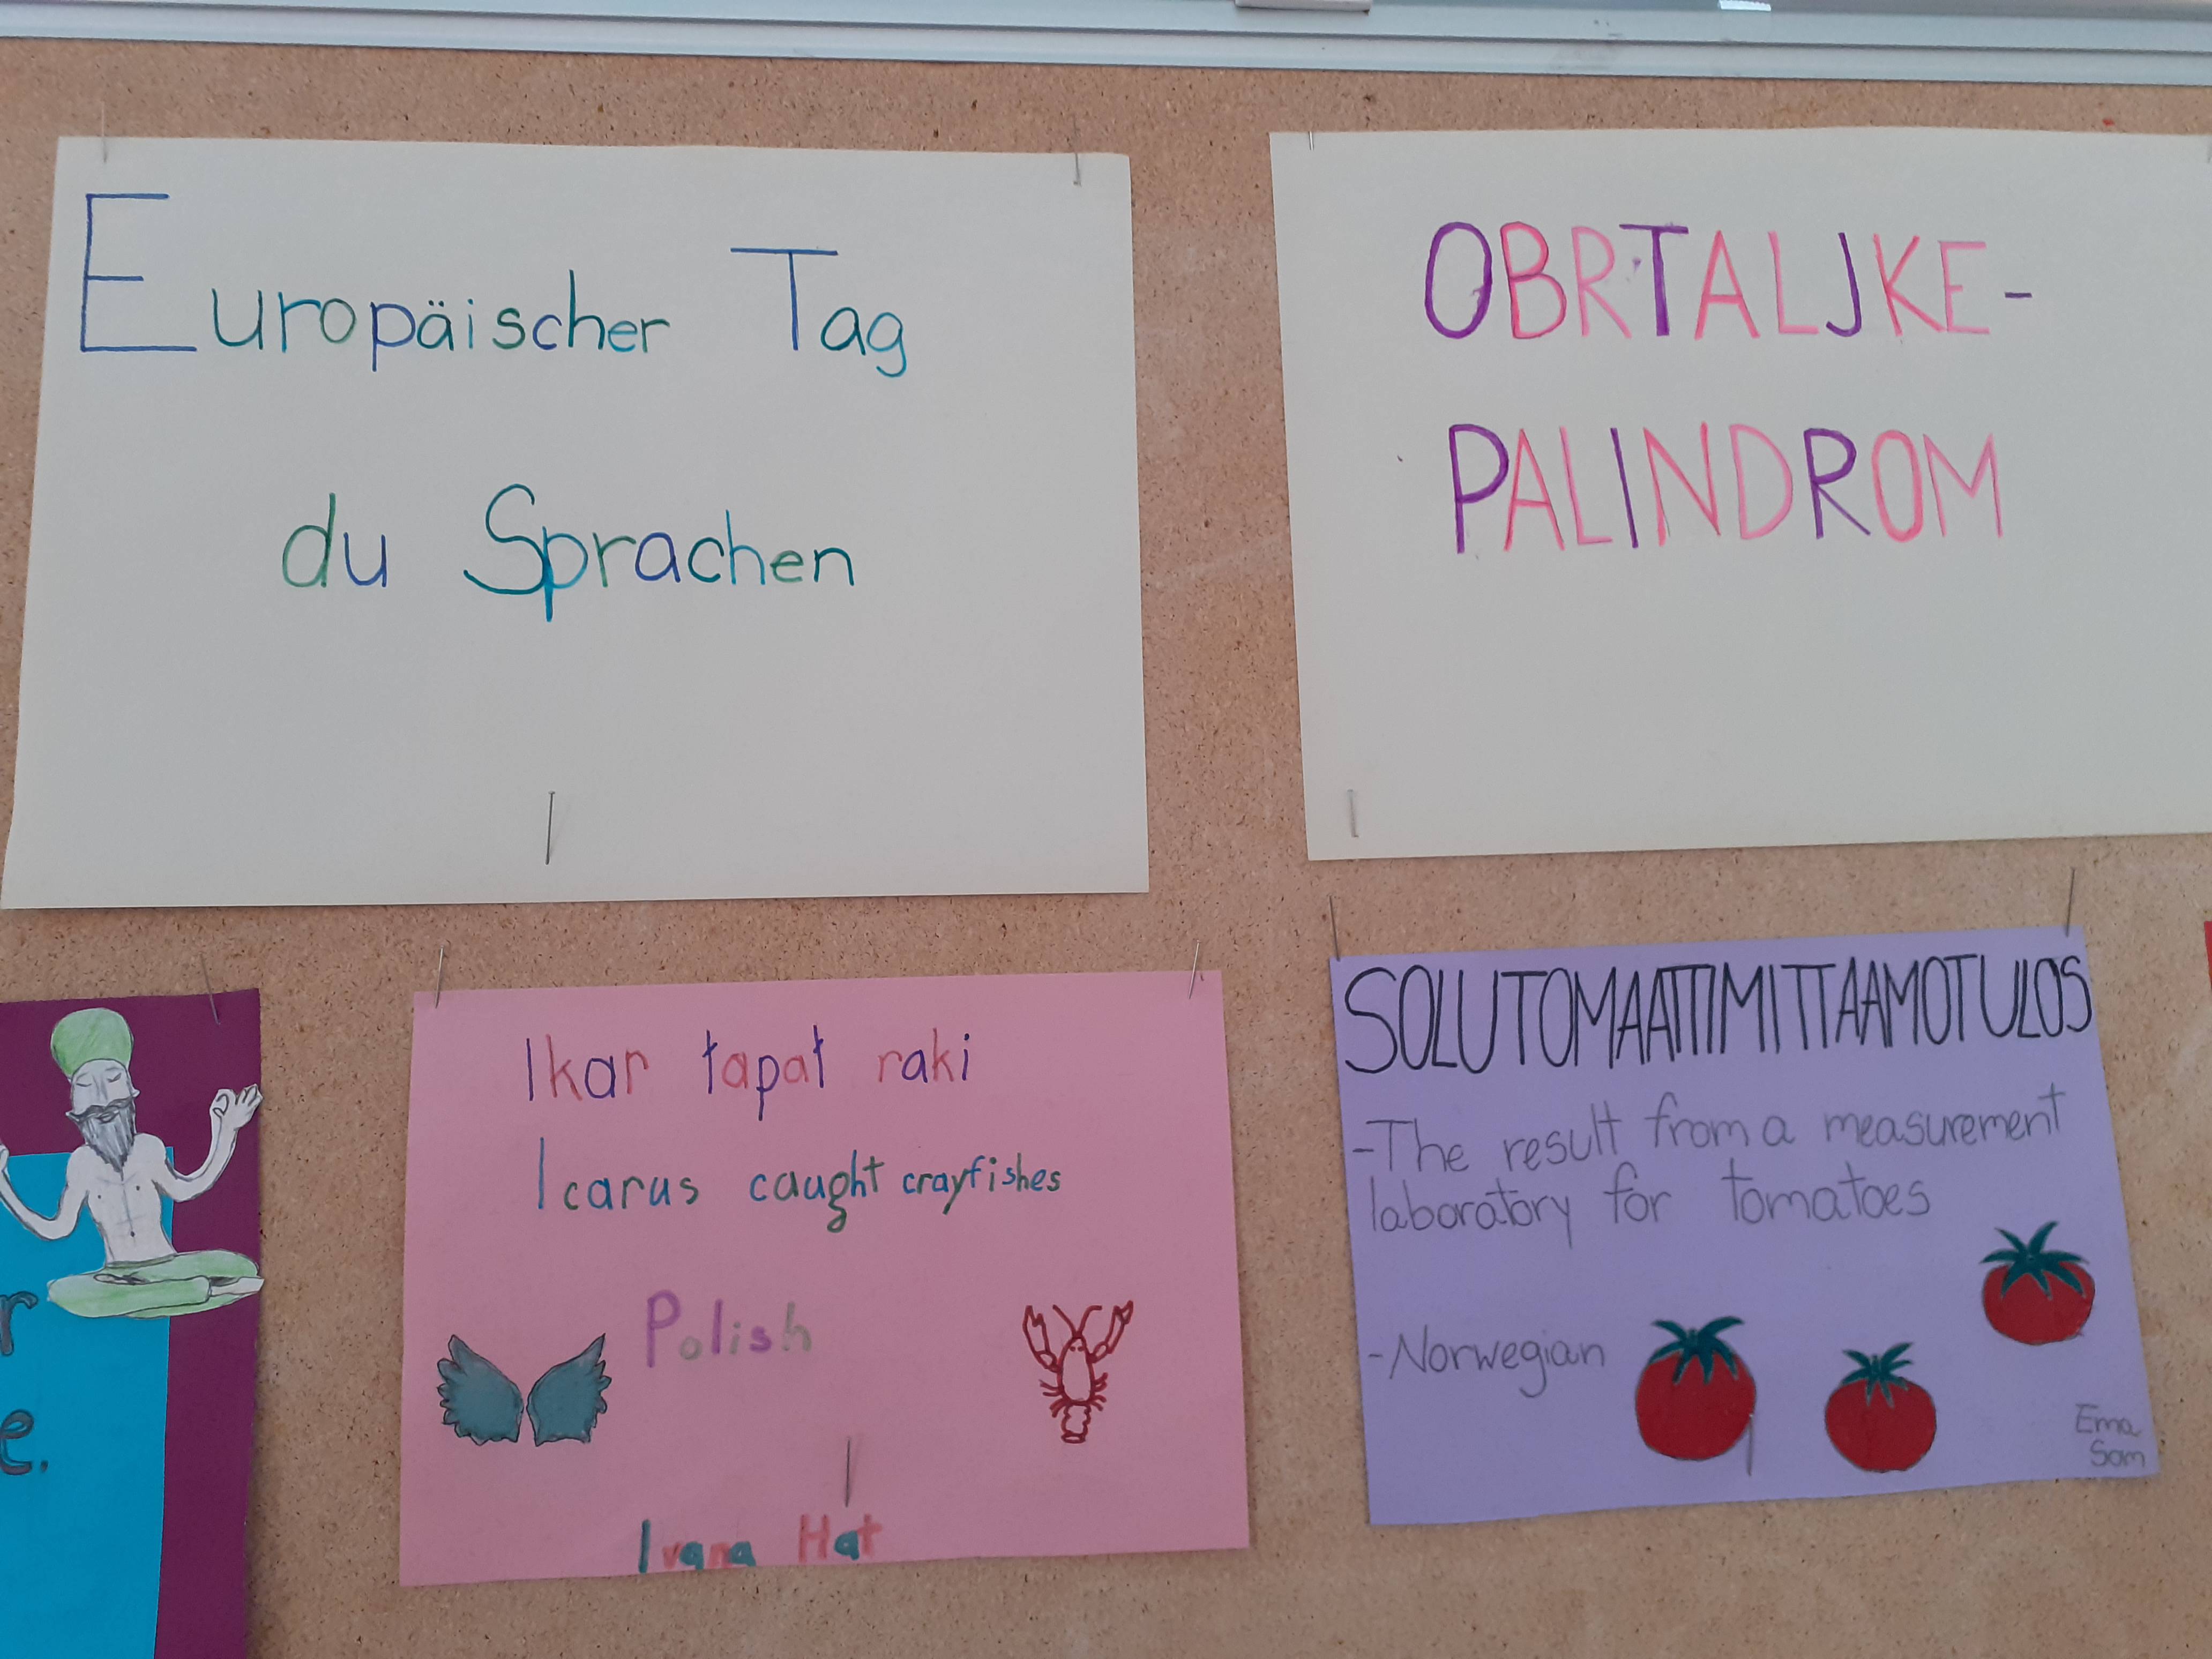 Europäischer Tag
du Sprachen
OBRTALJKE-
PALINDROM
r
e.
Ikar łapał raki
Icarus caught crayfishes
Polish
Ivana Hat
SOLUTOMAATTIMITTAAMOTULOS
-The result from a measurement
laboratory for tomatoes
-Norwegian
Ema
Sam